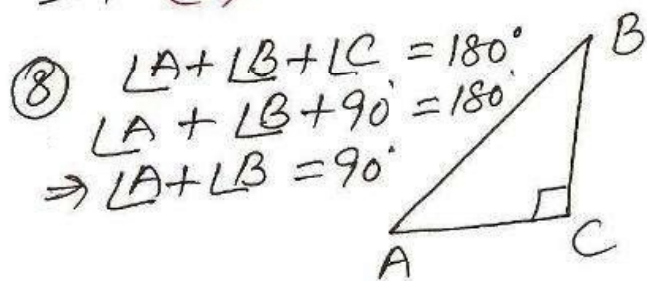 ⑧ ∠A + ∠B + ∠C = 180°
∠A + ∠B + 90° = 180°
⇒ ∠A + ∠B = 90°
B
A
C